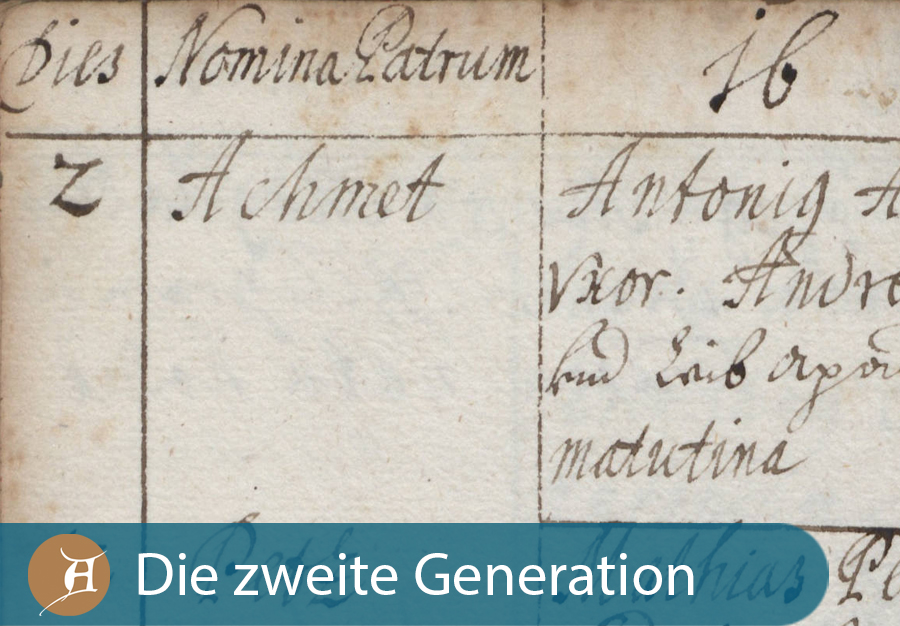 Dies Nomina Patrum 16
2 Achmet Antonig A
Vxor. Andre
und Leib apo
matutina
Mathias Pe
Die zweite Generation